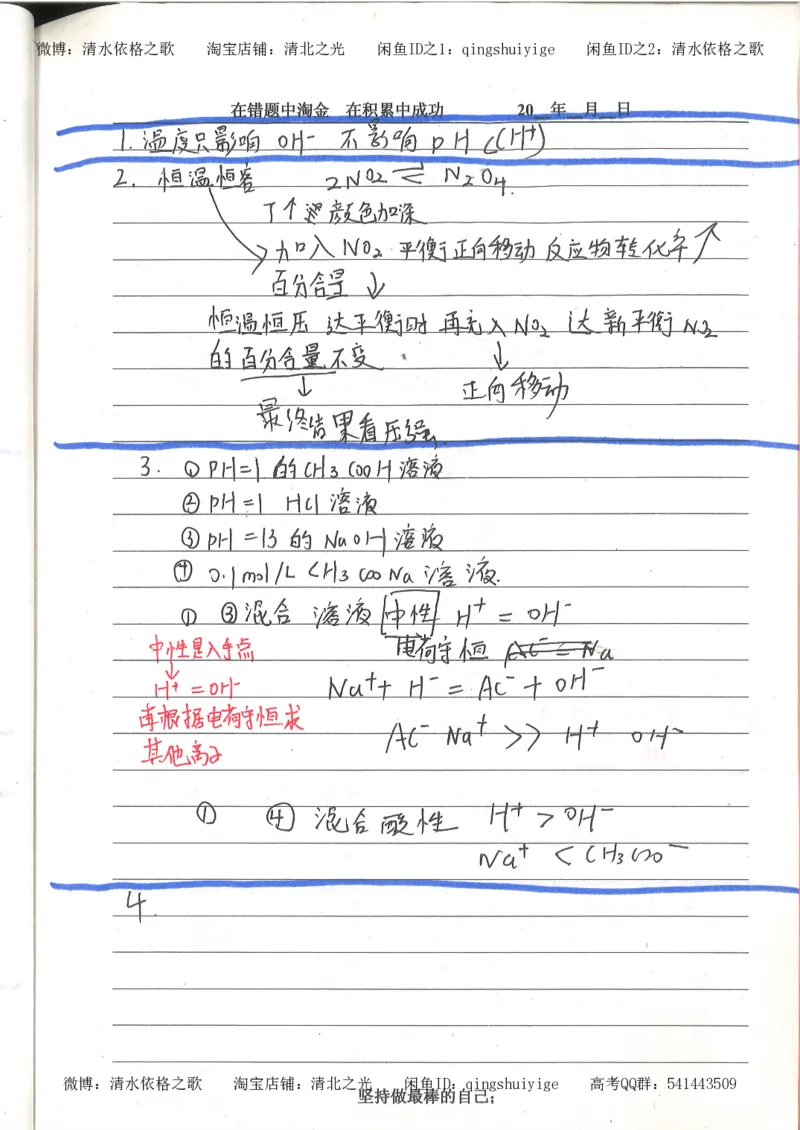 微博：清水依格之歌 淘宝店铺：清北之光 闲鱼ID之1：qingshuiyige 闲鱼ID之2：清水依格之歌
在错题中淘金 在积累中成功 20__年__月__日
1. 温度只影响 OH⁻ 不影响 pH c(H⁺)
2. 恒温恒容 2NO₂ ⇌ N₂O₄.
T↑ 颜色加深
加入 NO₂ 平衡正向移动 反应物转化率↗
百分含量 ↓
恒温恒压 达平衡时 再充入 NO₂ 达新平衡 NO₂
的百分含量不变
↓ 正向移动
最终结果看压强
3. ① PH=1 的 CH3COOH 溶液
② pH=1 HCl 溶液
③ pH=13 的 NaOH 溶液
④ 0.1mol/L CH3COONa 溶液.
① ③混合 溶液 中性 H⁺ = OH⁻
中性是入手点
电荷守恒
↓
H⁺ = OH⁻
Na⁺ + H⁻ = AC⁻ + OH⁻
再根据电荷守恒求
AC⁻ Na⁺ >> H⁺ OH⁻
其他离子
① ④ 混合酸性 H⁺ > OH⁻
Na⁺ < CH3COO⁻
4.
微博：清水依格之歌 淘宝店铺：清北之光 闲鱼ID：qingshuiyige 高考QQ群：541443509
坚持做最棒的自己；